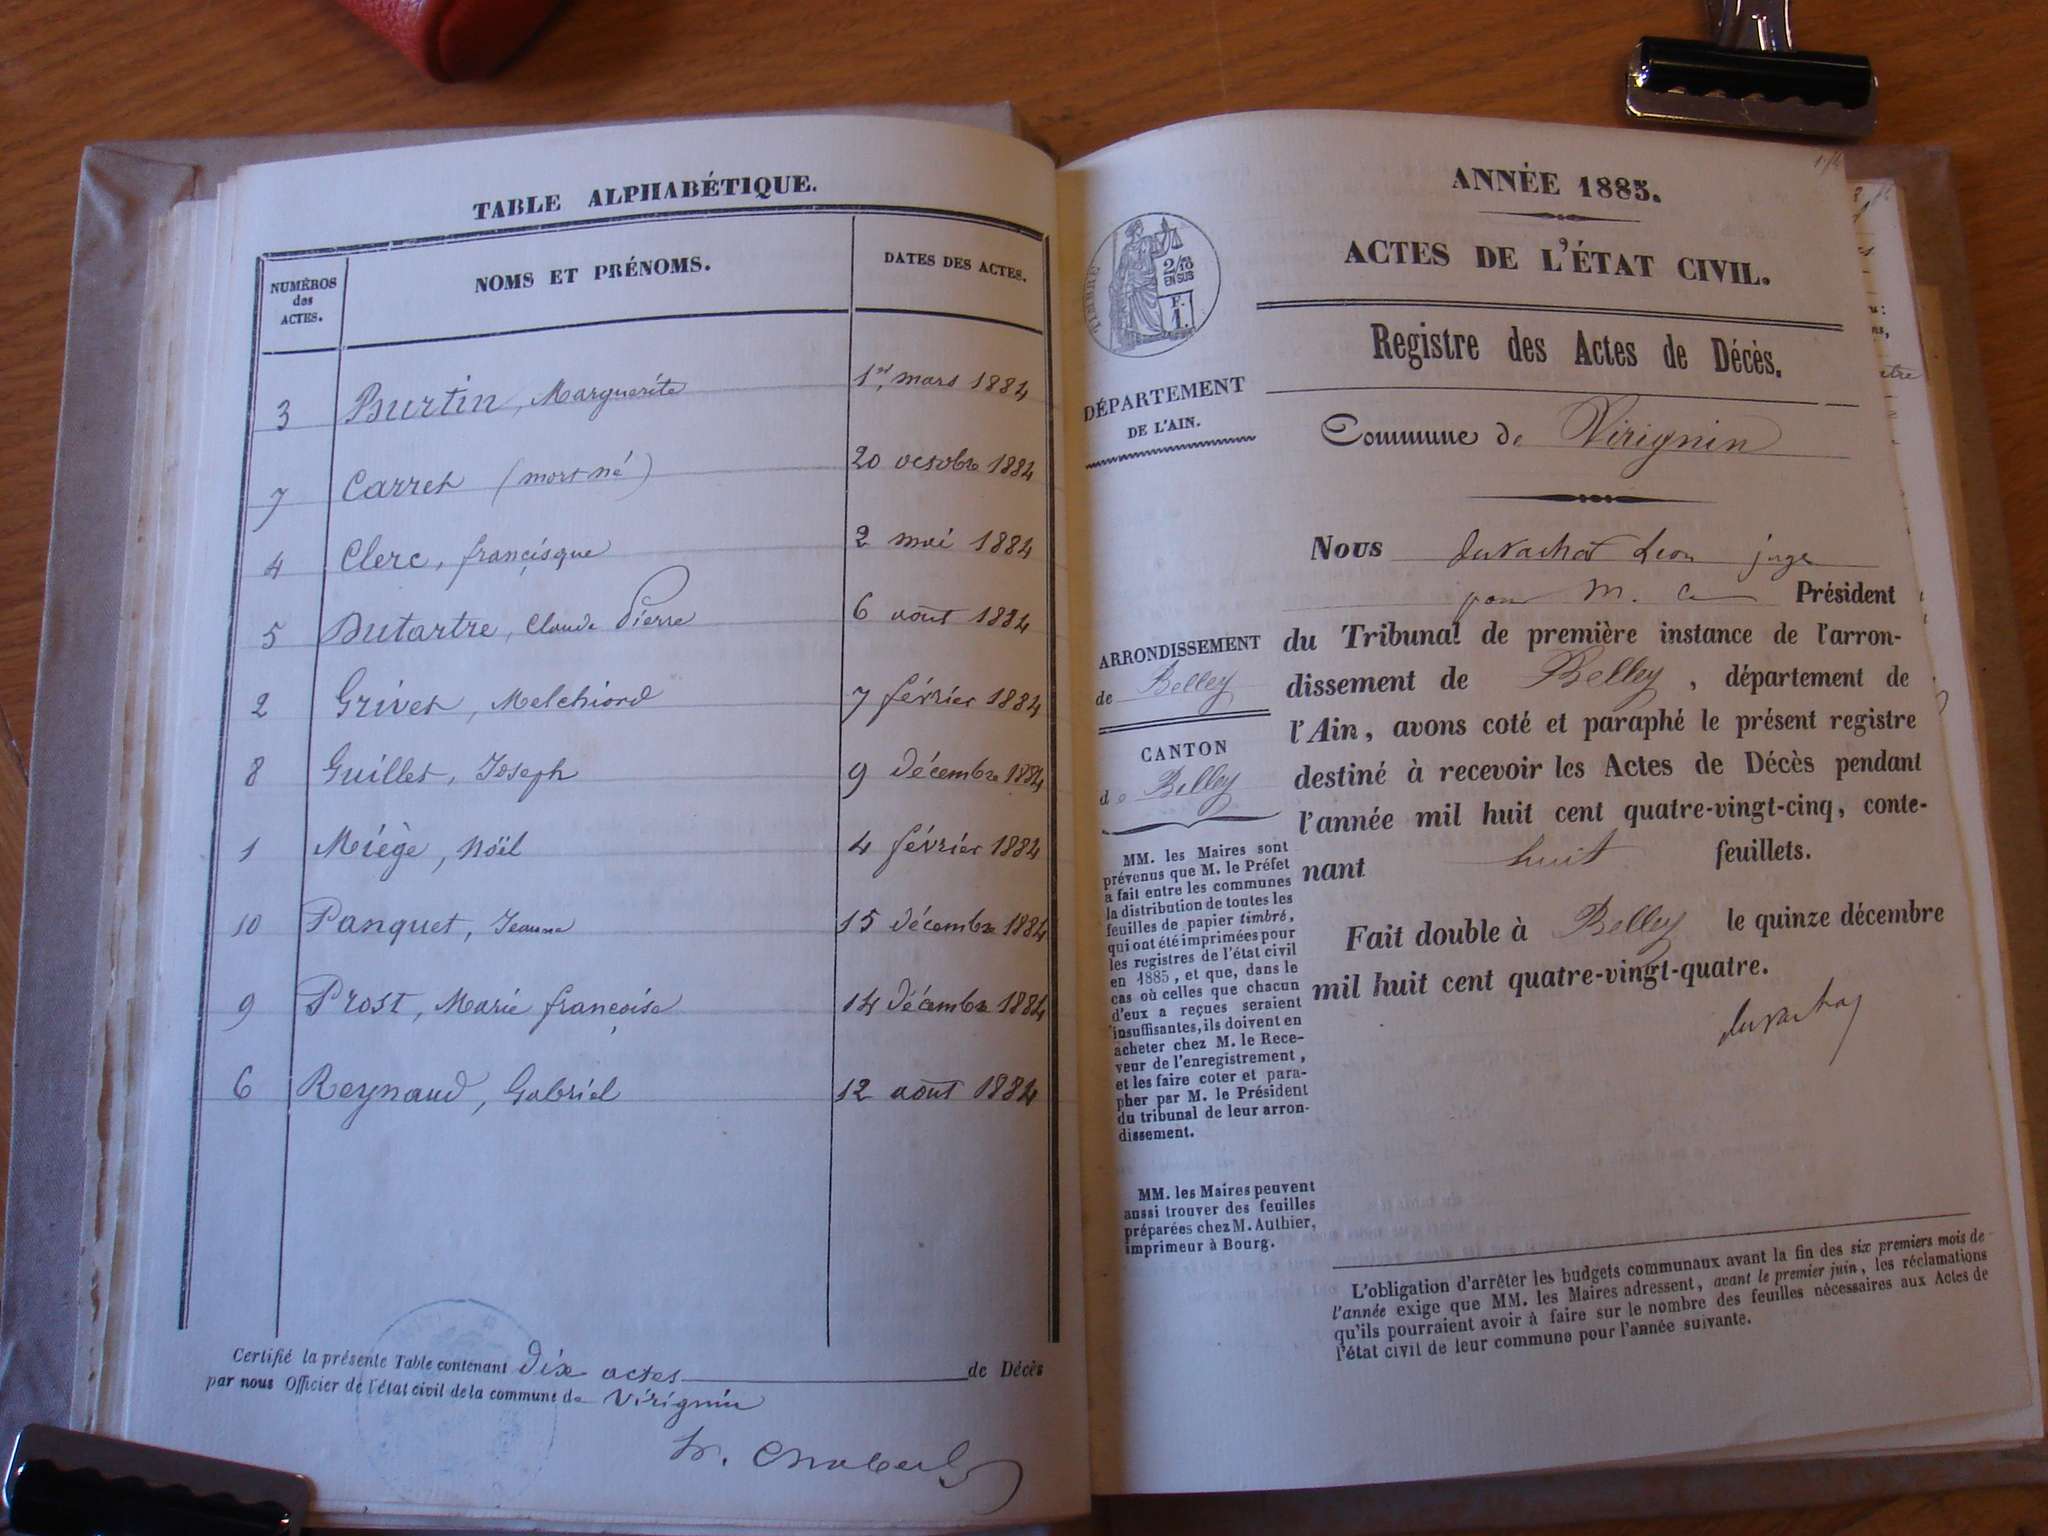 TABLE ALPHABÉTIQUE.
NUMÉROS
des
ACTES.
NOMS ET PRÉNOMS.
DATES DES ACTES.
3 Burtin, Marguerite 1er mars 1884
7 Carret (mort né) 20 octobre 1884
4 Clerc, françisque 2 mai 1884
5 Dutartre, Claude Pierre 6 août 1884
2 Grivet, Melchiord 7 février 1884
8 Guillet, Joseph 9 décembre 1884
1 Miège, Noël 4 février 1884
10 Panquet, Jeanne 15 décembre 1884
9 Prost, Marie françoise 14 décembre 1884
6 Reynaud, Gabriel 12 août 1884
Certifié la présente Table contenant dix actes de Décès
par nous Officier de l'état civil de la commune de Virignin
ANNÉE 1885.
ACTES DE L'ÉTAT CIVIL.
TIMBRE
2/10
EN SUS
F.
1.
Registre des Actes de Décès.
DÉPARTEMENT
DE L'AIN.
Commune de Virignin
Nous Léon juge
pour M. Président
du Tribunal de première instance de l'arron-
dissement de Belley, département de
l'Ain, avons coté et paraphé le présent registre
destiné à recevoir les Actes de Décès pendant
l'année mil huit cent quatre-vingt-cinq, conte-
nant huit feuillets.
Fait double à Belley le quinze décembre
mil huit cent quatre-vingt-quatre.
ARRONDISSEMENT
de Belley
CANTON
de Belley
MM. les Maires sont
prévenus que M. le Préfet
a fait entre les communes
la distribution de toutes les
feuilles de papier timbré,
qui ont été imprimées pour
les registres de l'état civil
en 1885, et que, dans le
cas où celles que chacun
d'eux a reçues seraient
insuffisantes, ils doivent en
acheter chez M. le Rece-
veur de l'enregistrement,
et les faire coter et para-
pher par M. le Président
du tribunal de leur arron-
dissement.
MM. les Maires peuvent
aussi trouver des feuilles
préparées chez M. Authier,
imprimeur à Bourg.
L'obligation d'arrêter les budgets communaux avant la fin des six premiers mois de
l'année exige que MM. les Maires adressent, avant le premier juin, les réclamations
qu'ils pourraient avoir à faire sur le nombre des feuilles nécessaires aux Actes de
l'état civil de leur commune pour l'année suivante.